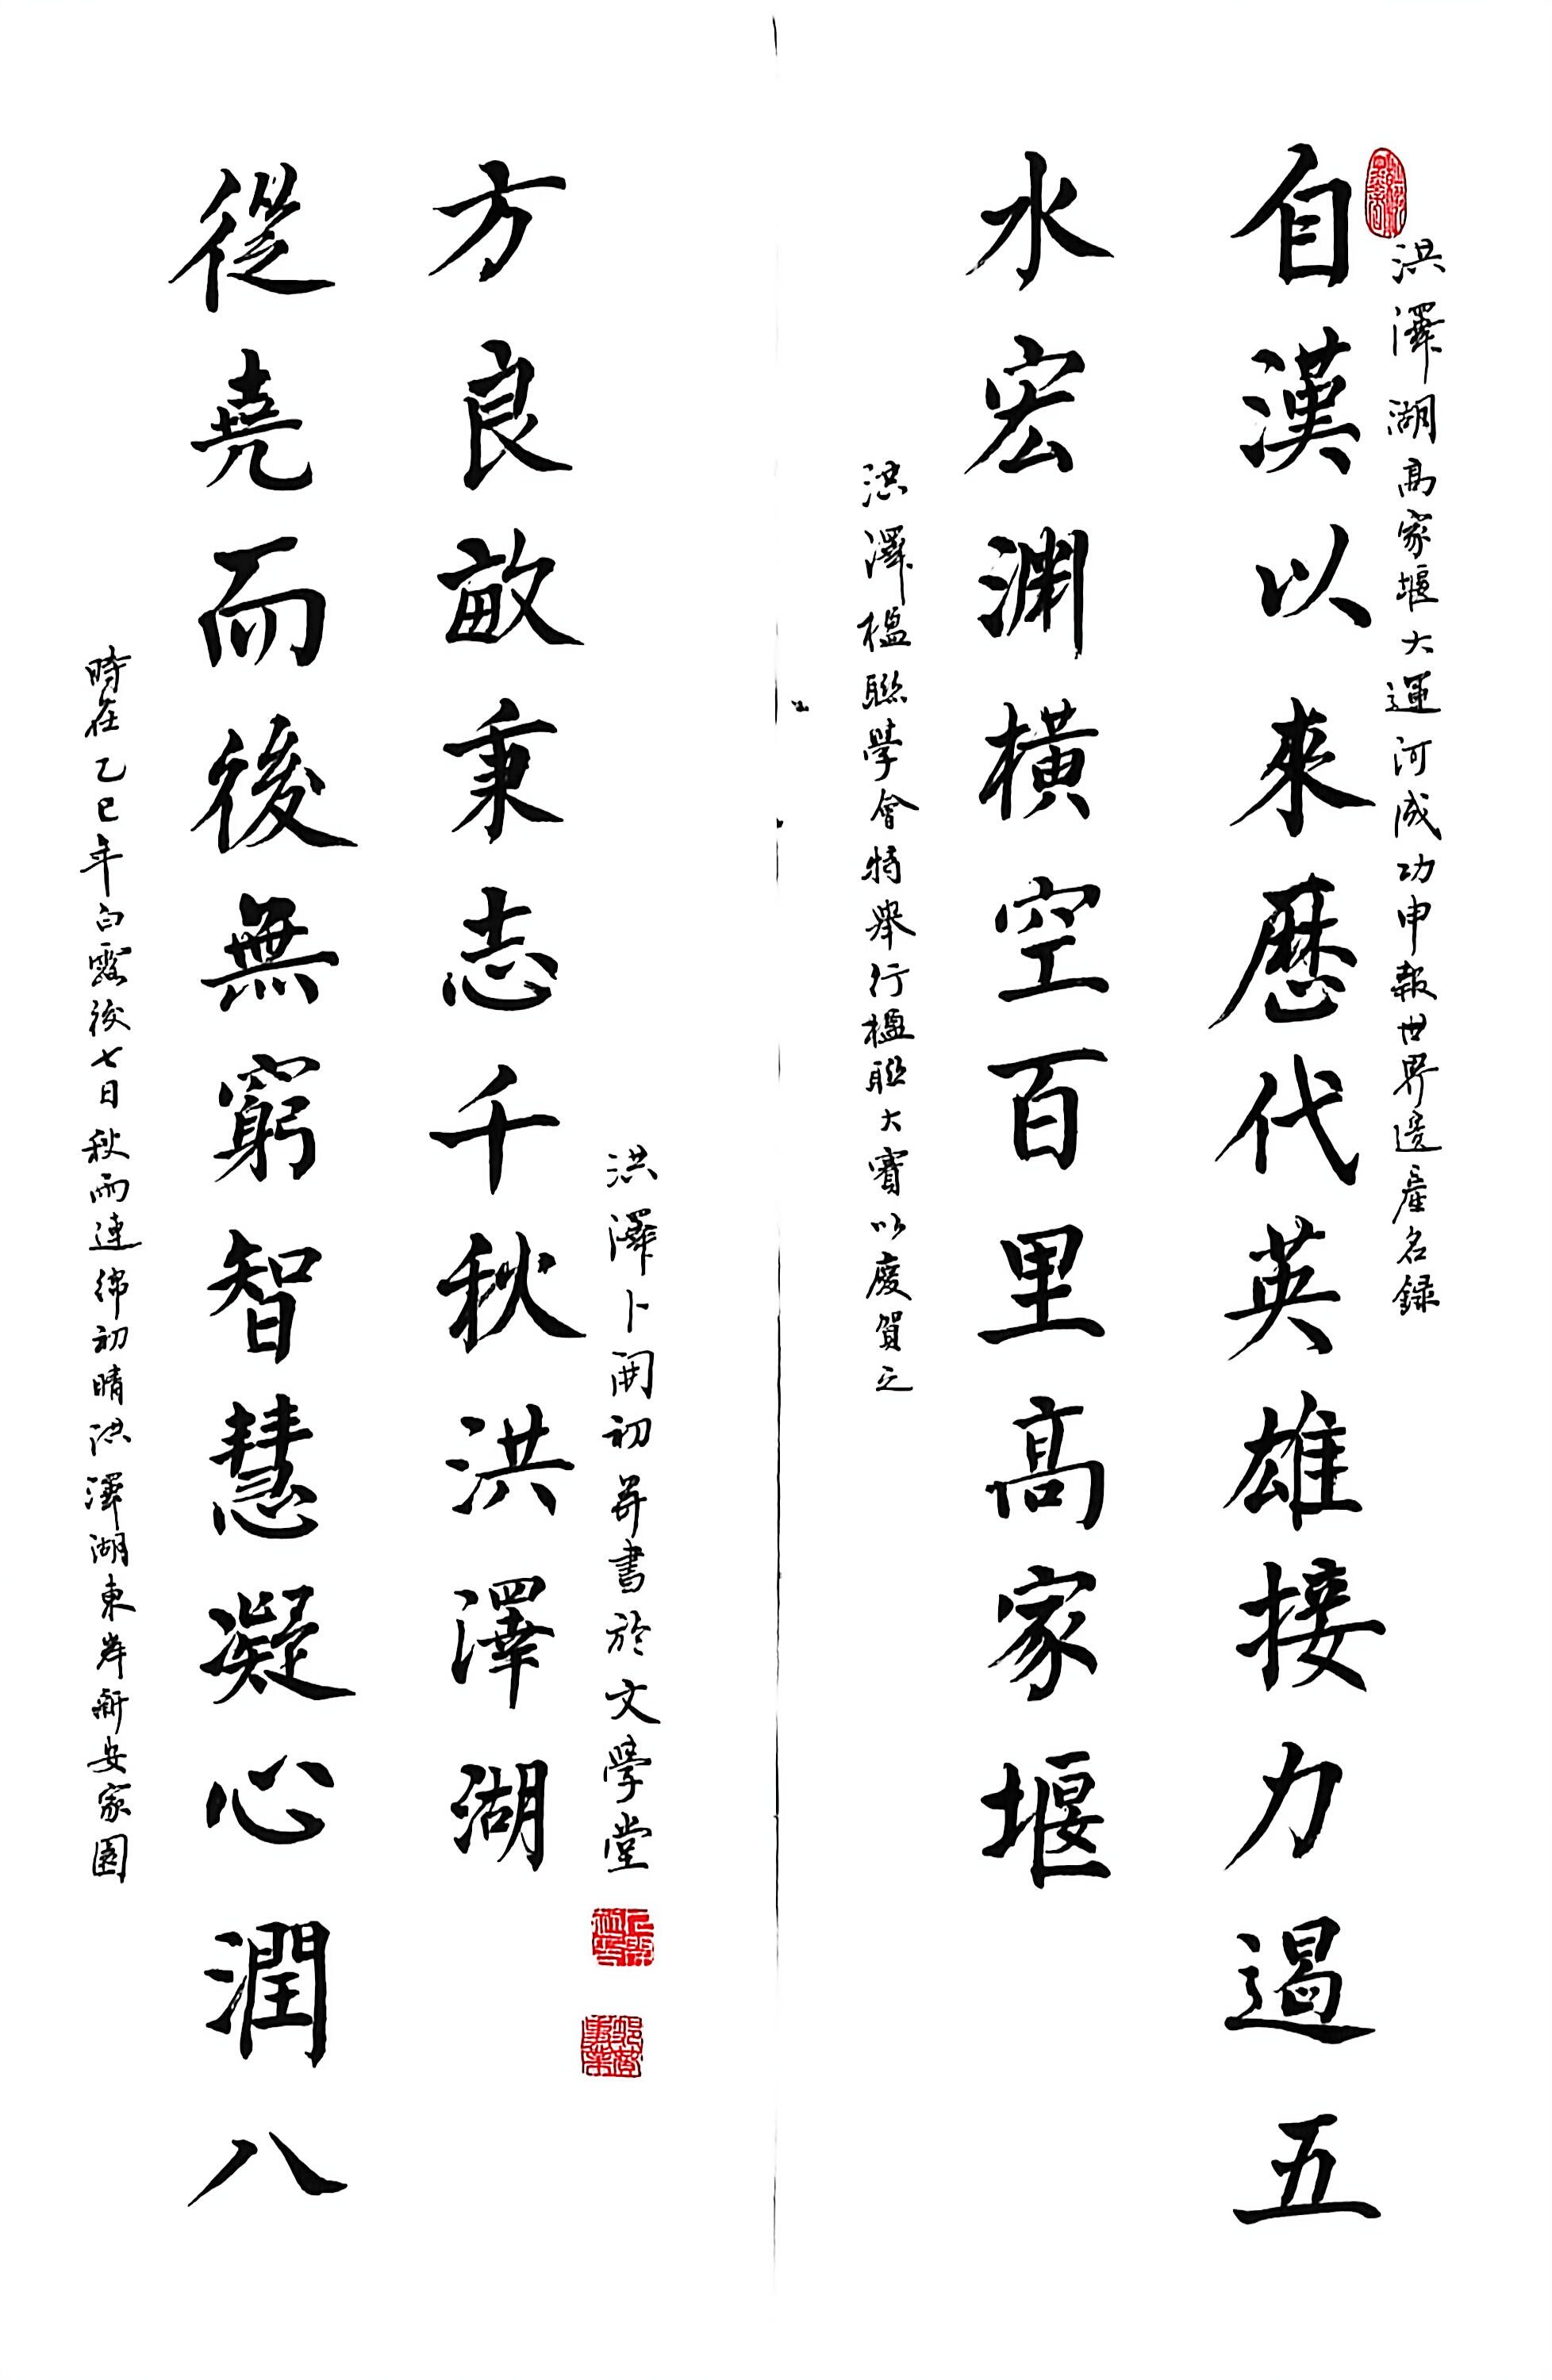 洪澤湖高家堰大運河成功申報世界遺產名錄
自漢以來歷代英雄接力遏五
水宏淵橫空百里高家堰
洪澤楹聯學會特舉行楹聯大賽以慶賀之
從堯而後無窮智慧凝心潤八
方良畝秉志千秋洪澤湖
時在乙巳年白露後七日秋雨連綿初晴洪澤湖東岸新安家園
洪澤卜開初並書於文學堂